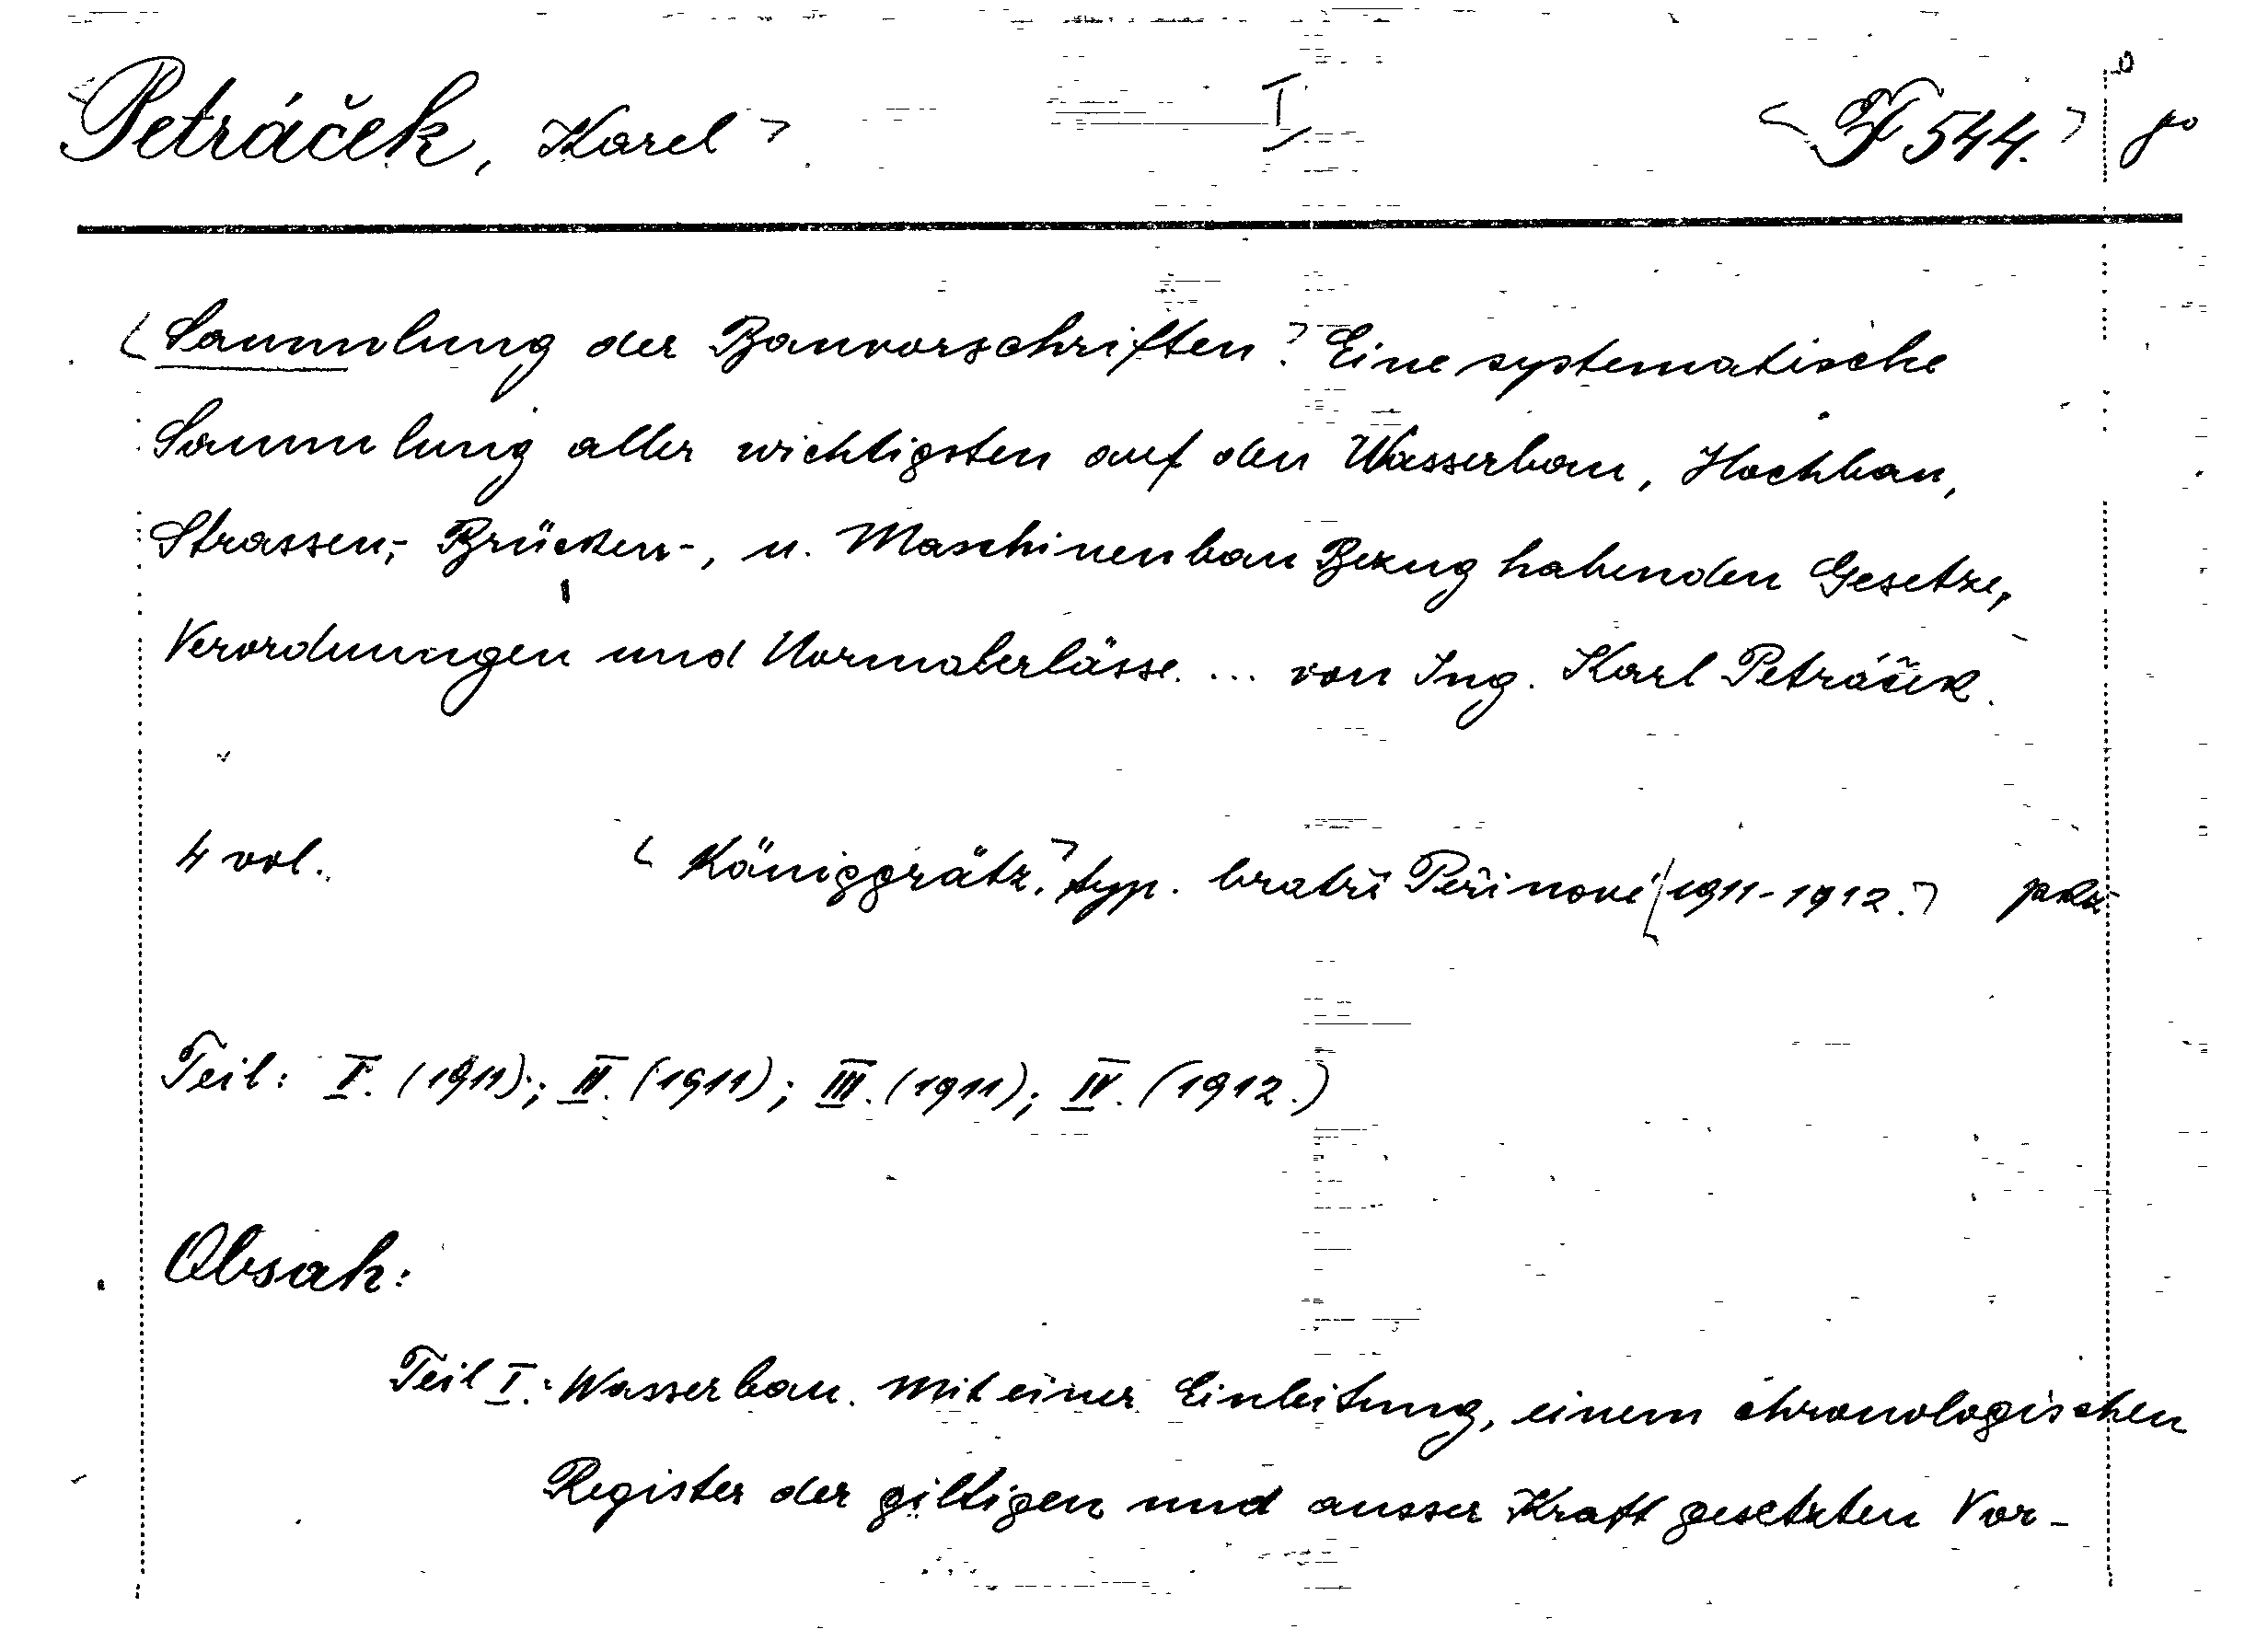 Petráček, Karel I. F 544.
Sammlung der Bauvorschriften. Eine systematische
Sammlung aller wichtigsten auf den Wasserbau, Hochbau,
Strassen-, Brücken-, u. Maschinenbau Bezug habenden Gesetze,
Verordnungen und Normalerlässe. ... von Ing. Karl Petráček.
4 vol. Käniggrätz, typ. bratří Peřinové 1911-1912.
Teil: I. (1911); II. (1911); III. (1911); IV. (1912.)
Obsah:
Teil I.: Wasserbau. Mit einer Einleitung, einem chronologischen
Register der giltigen und ausser Kraft gesetzten Vor-